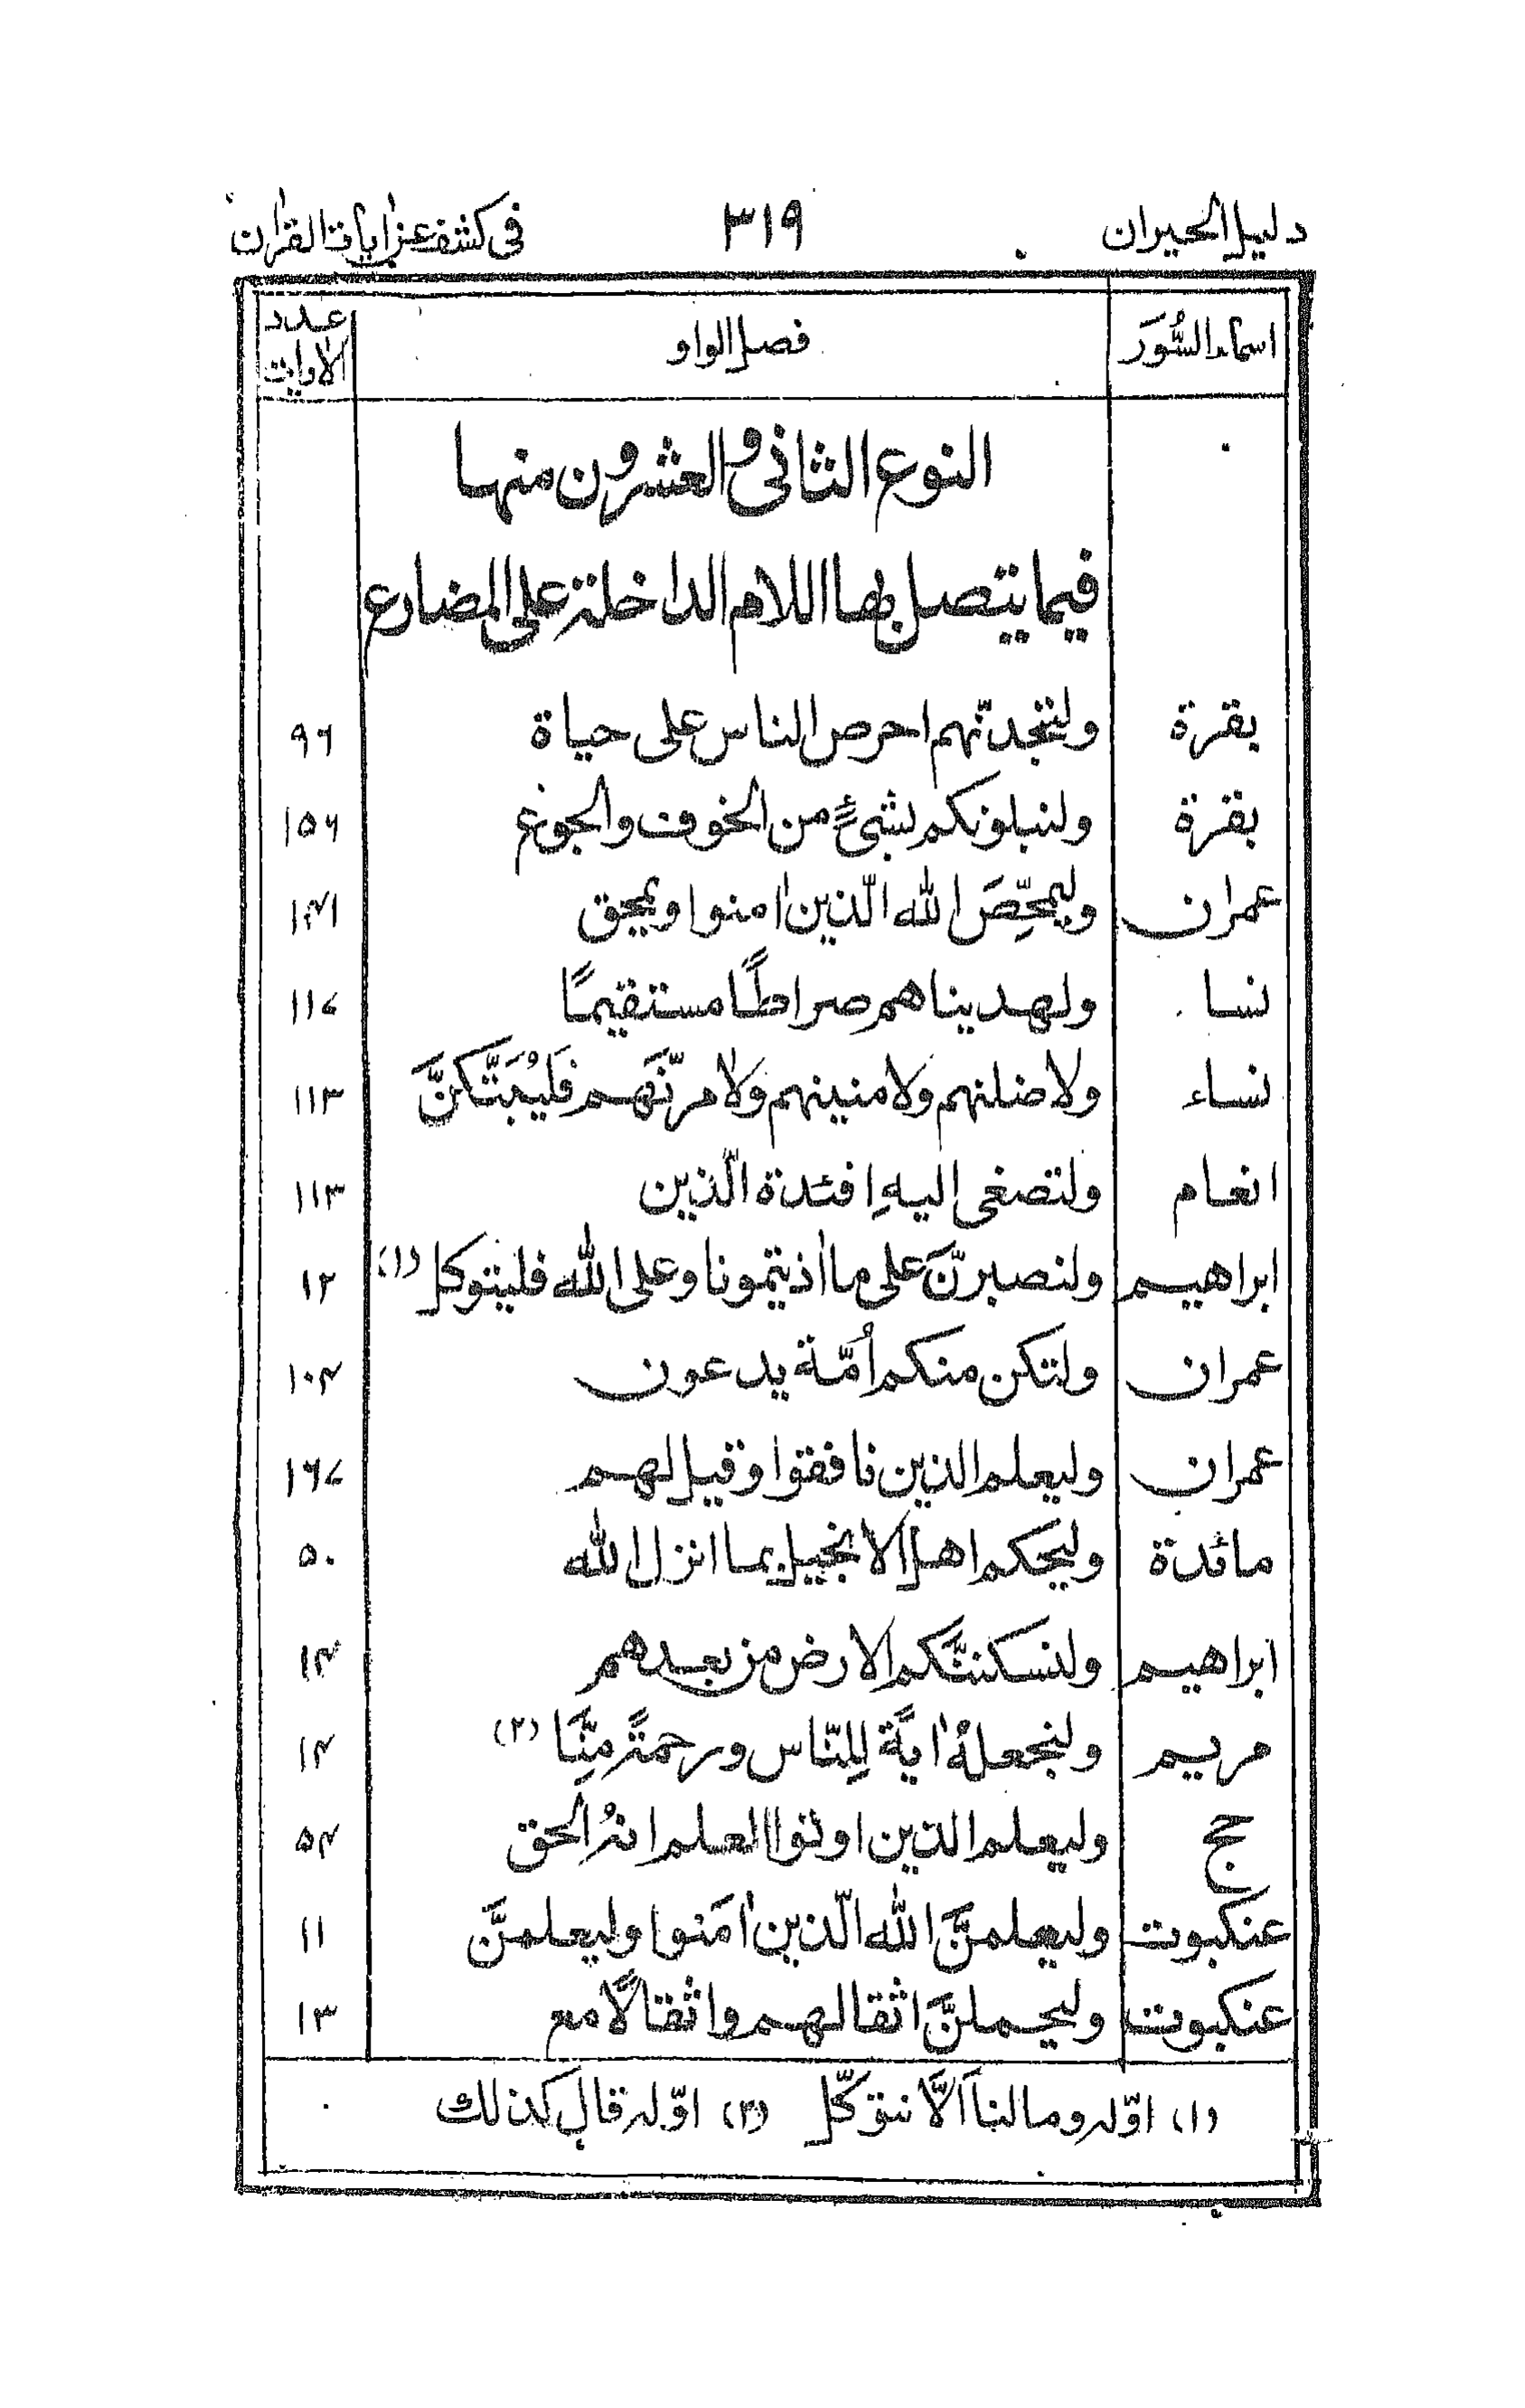 دليل الحيران ٣١٩ فى كشف عن اٰيات القراٰن
اسماء السُّوَر فصل الواو عدد الاٰيات
النوع الثانى والعشرون منها
فيما يتصل بها اللام الداخلة على المضارع
بقرة ولتجدنّهم احرص الناس على حياة ٩٦
بقرة ولنبلونكم بشىءٍ من الخوف والجوع ١٥٦
عمران وليمحِّصَ الله الّذين اٰمنوا ويمحق ١٤١
نسا ولهديناهم صراطًا مستقيمًا ١١٧
نساء ولاضلنهم ولامنينهم ولاٰمرنّهم فَلَيُبَتِّكُنَّ ١١٣
انعام ولتصغى اليهِ افئدة الّذين ١١٣
ابراهيم ولنصبرنَّ على ما اٰذيتمونا وعلى الله فليتوكل (١) ١٢
عمران ولتكن منكم اُمّة يدعون ١٠٤
عمران وليعلم الذين نافقوا وقيل لهم ١٦٧
مائدة وليحكم اهل الانجيل بما انزل الله ٥٠
ابراهيم ولنسكننَّكم الارض من بعدهم ١٤
مريم ولنجعلهُ اٰيةً لِلنّاس ورحمةً مِنَّا (٢) ١٤
حج وليعلم الذين اوتوا العلم انهُ الحق ٥٤
عنكبوت وليعلمنَّ الله الّذين اٰمَنوا وليعلمنَّ ١١
عنكبوت وليحملنَّ اثقالهم واثقالًا مع ١٣
(١) اوّله وما لنا اَلَّا نتوكّل (٢) اوّله قال كذلك